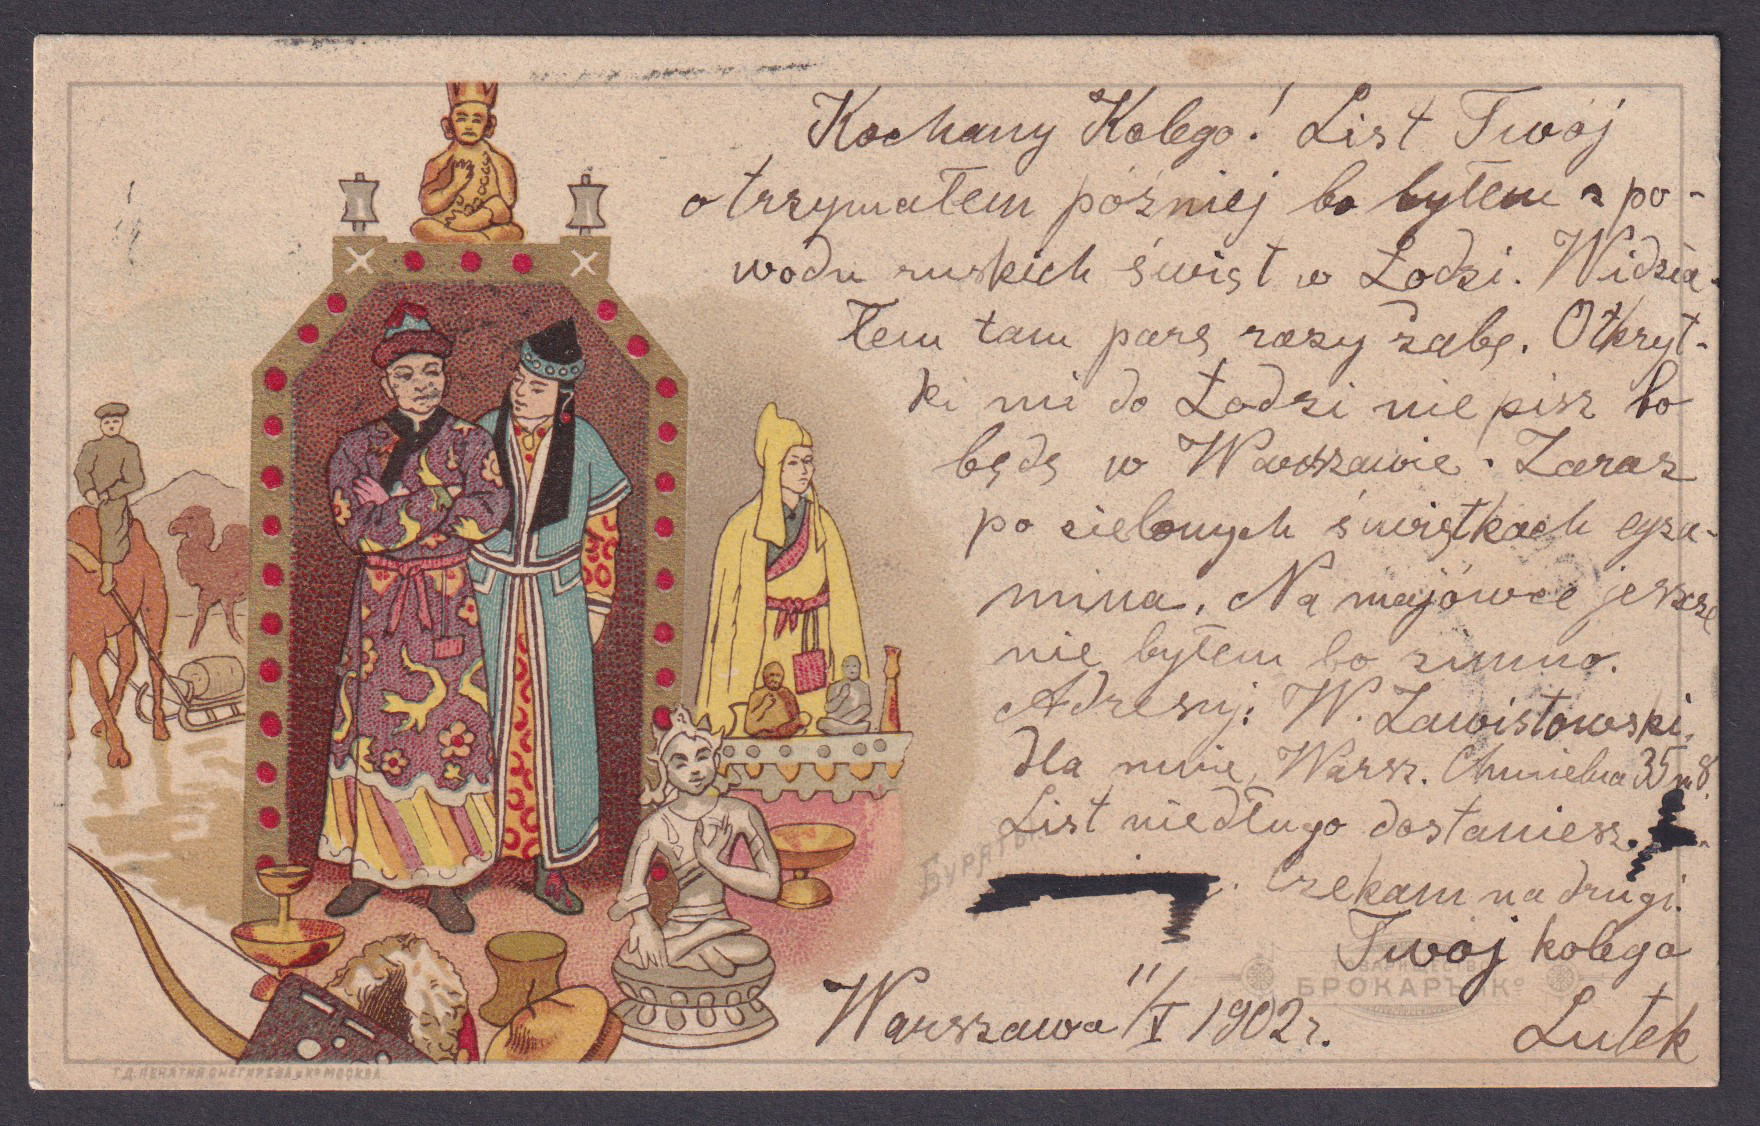 Kochany Kolego! List Twój
otrzymałem później bo byłem z po-
wodu ruskich świąt w Łodzi. Widzia-
łem tam parę razy żabę. Otkryt-
ki mi do Łodzi nie pisz bo
będę w Warszawie. Zaraz
po zielonych świątkach egza-
mina. Na majówce jeszcze
nie byłem bo zimno.
Adresuj: W. Zawistowski,
dla mnie, Warsz. Chmielna 35 m 8.
List niedługo dostaniesz.
Czekam na drugi.
Twój kolega
Lutek
Warszawa 11/V 1902 r.
Буряты.
ТОВАРИЩЕСТВО
БРОКАРЪ и К°
Т.Д. ПЕЧАТНЯ СНЕГИРЕВА и К° МОСКВА